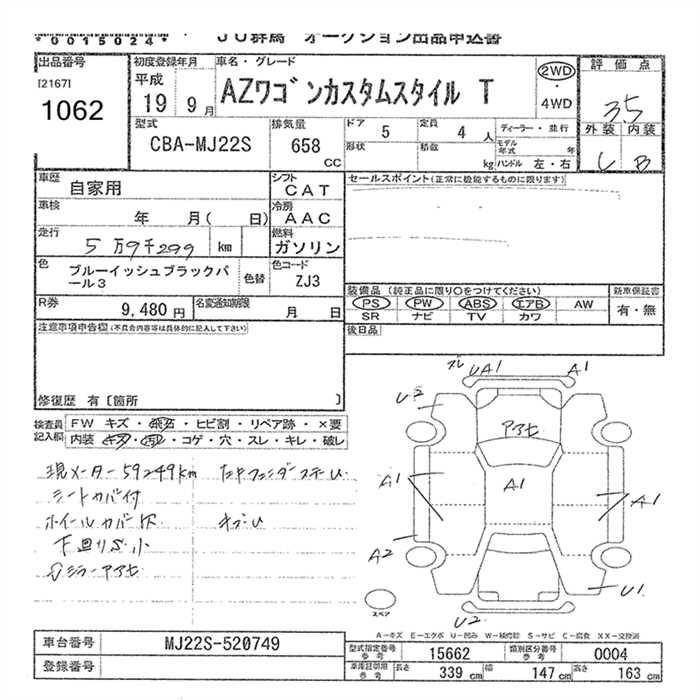 *0015024*
JU群馬 オークション出品申込書
出品番号
[2167]
1062
初度登録年月
平成
19 9月
車名・グレード
AZワゴンカスタムスタイル T
2WD
・
4WD
評価点
3.5
外装 内装
C B
型式
CBA-MJ22S
排気量
658
cc
ドア
5
定員
4 人
形状
積数
kg
ディーラー・並行
モデル年式 年
ハンドル 左・右
車歴
自家用
シフト
CAT
車検
年 月( 日)
冷房
AAC
走行
5万9千299 km
燃料
ガソリン
色
ブルーイッシュブラックパール3
色替
色コード
ZJ3
R券
9,480 円
名変通知期限
月 日
セールスポイント(正常に機能するものに限ります)
装備品 (純正品に限り○をつけてください)
新車保証書
PS PW ABS エアB AW
SR ナビ TV カワ
有・無
後日品
注意事項申告欄(不具合内容等は具体的に記入して下さい)
修復歴 有[箇所 ]
検査員記入欄
FW キズ・飛石・ヒビ割・リペア跡・×要
内装 キズ・汚レ・コゲ・穴・スレ・キレ・破レ
現メーター59249km
シートカバー付
ホイールカバー欠
下廻りS小
UA1
A1
U2
アアセ
A1
A1
A1
A2
U1
U2
スペア
A-キズ E-エクボ U-凹み W-補修跡 S-サビ C-腐食 XX-交換済
車台番号
MJ22S-520749
登録番号
型式指定番号
参考
15662
類別区分番号
参考
0004
車庫証明用
参考
長さ
339 cm
幅
147 cm
高さ
163 cm